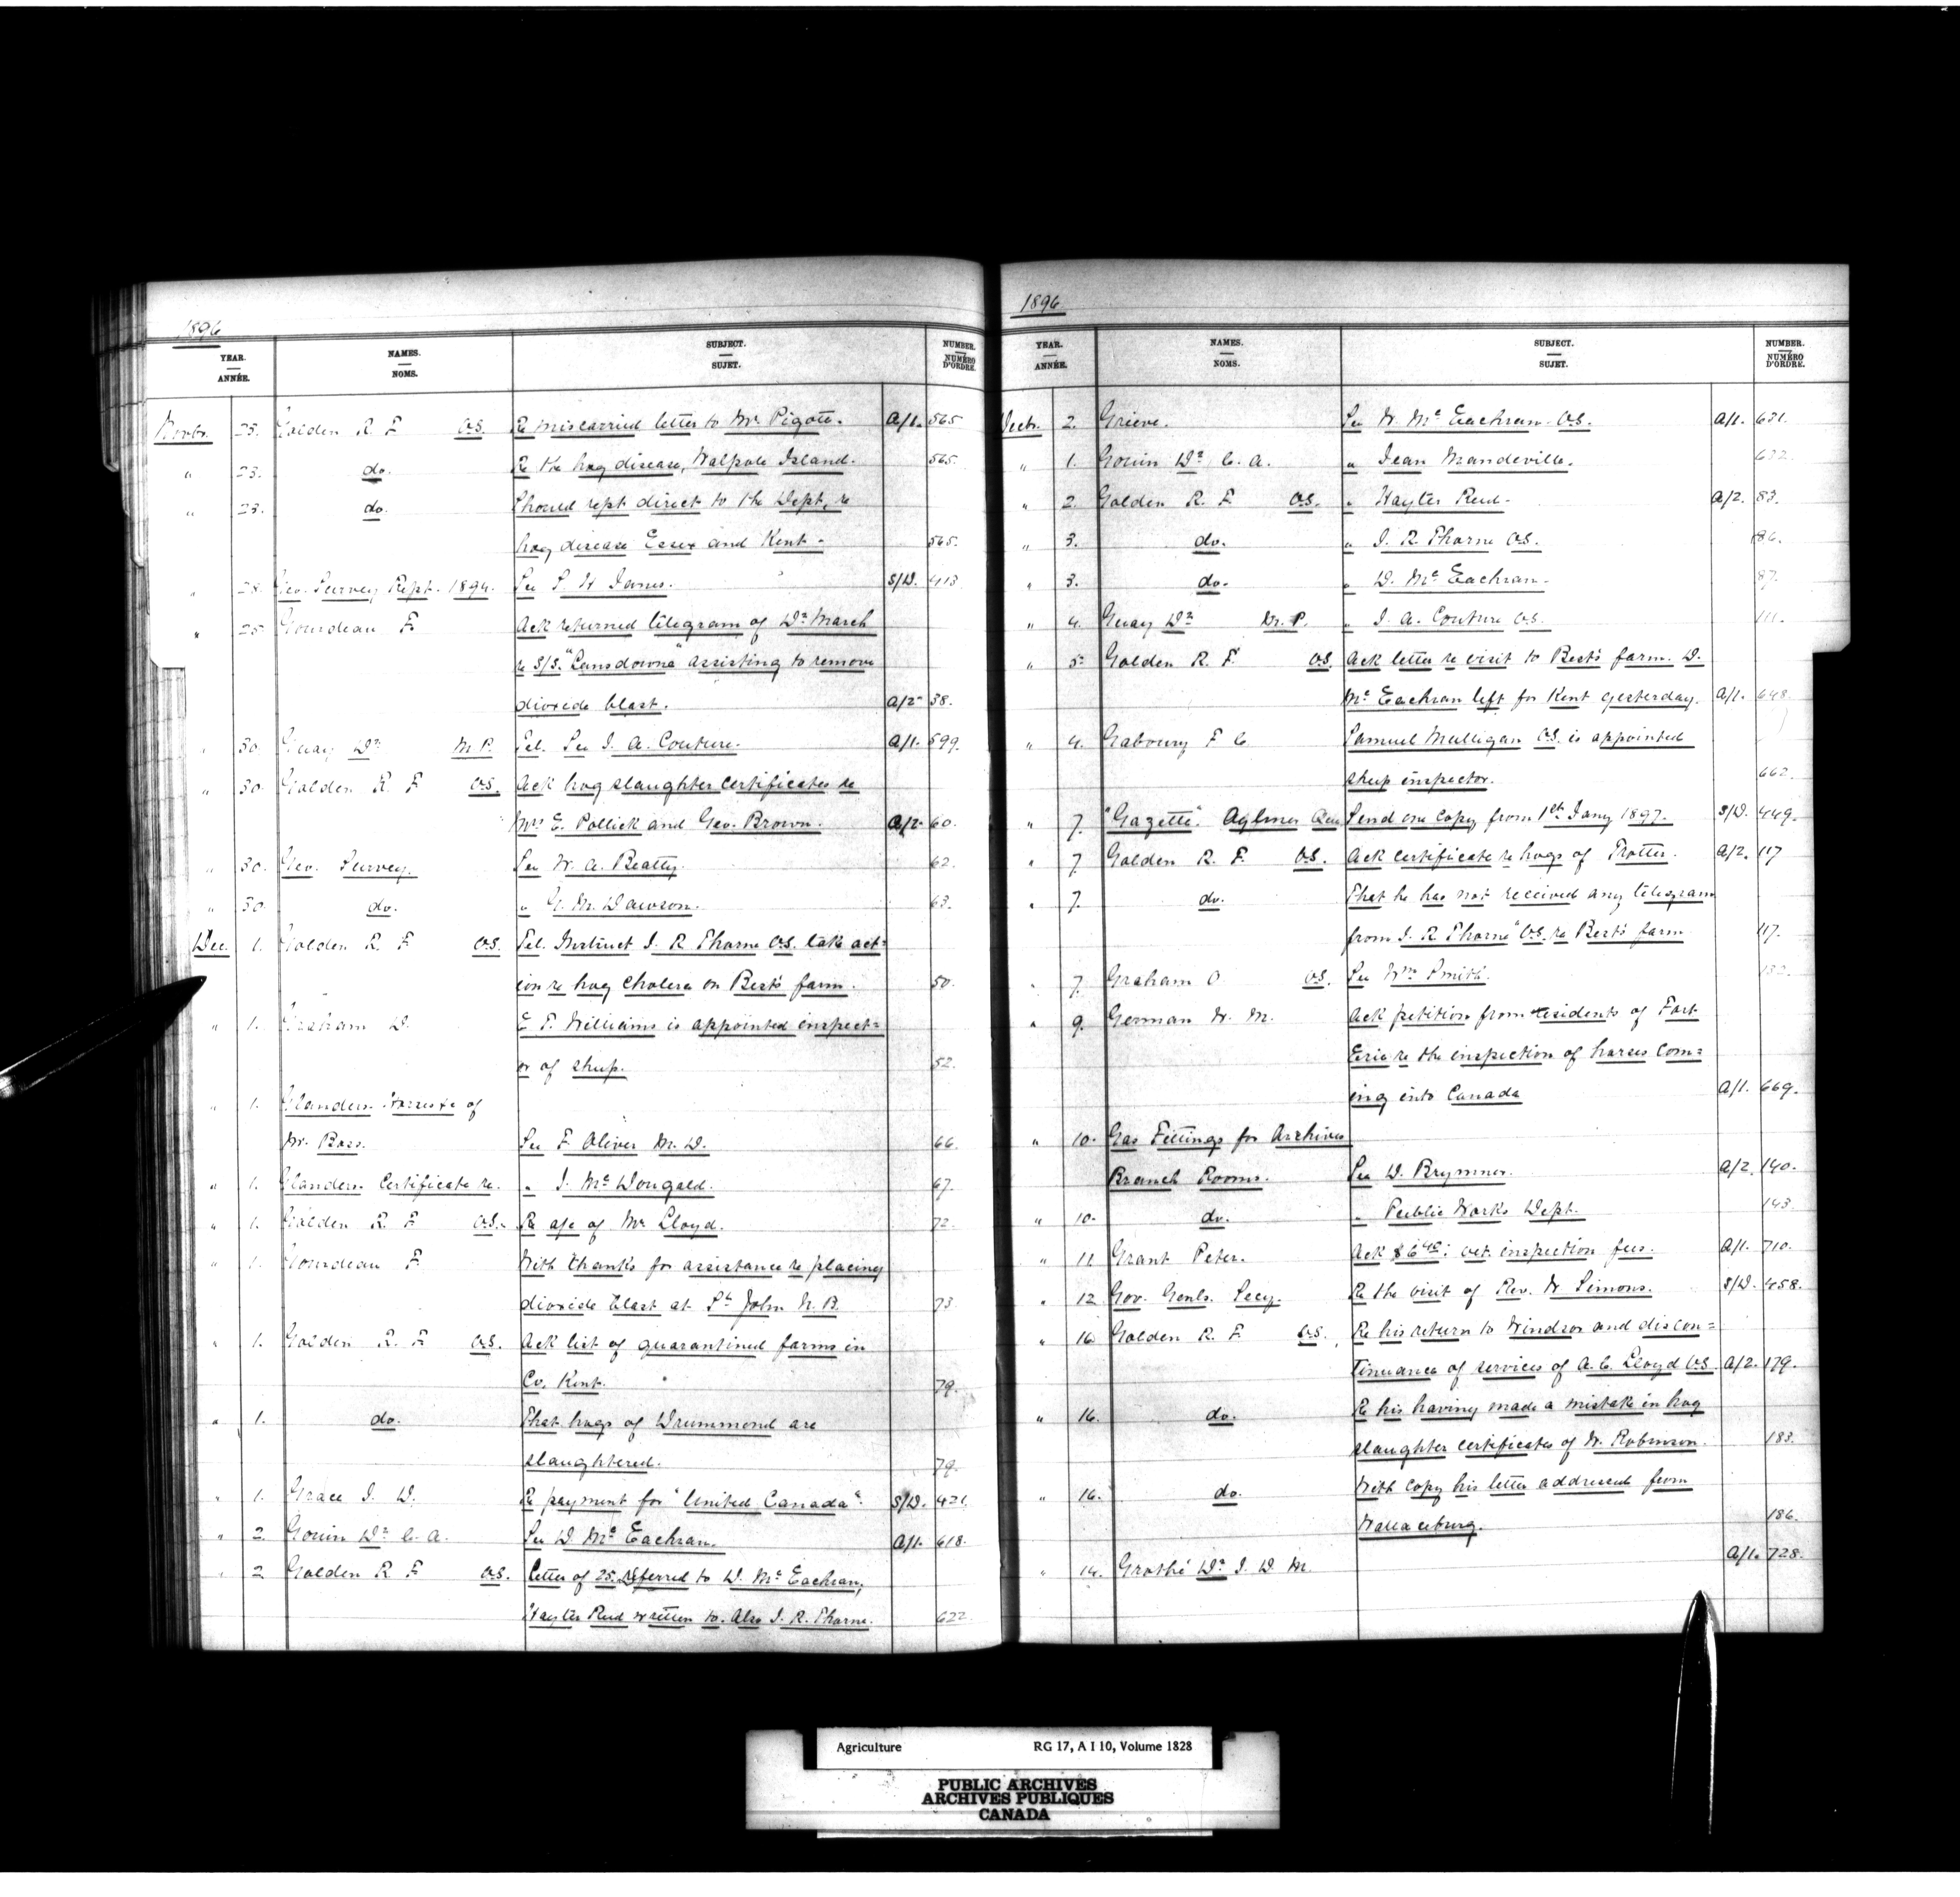 1896
YEAR. ANNÉE. NAMES. NOMS. SUBJECT. SUJET. NUMBER. NUMÉRO D'ORDRE.
Novbr. 23. Golden R. F. V.S. Re miscarried letter to Mr. Pigott. A/1. 565
" 23. do. Re the hog disease, Walpole Island. 565.
" 23. do. Should rept direct to the Dept, re
hog disease Essex and Kent - 565.
" 28. Geo. Survey Rept. 1894. See P. H James. S/D. 413
" 25 Gourdeau F Ack returned telegram of Dr March
re S/S. "Lansdowne" assisting to remove
dioxide blast. A/2 38.
" 30. Guay Dr M.P. Tel. See J. A. Couture. A/1. 599.
" 30. Golden R. F V.S. Ack hog slaughter certificates re
Mrs E. Pollick and Geo. Brown. A/2 60.
" 30. Geo. Survey. See W. A. Beatty. 62.
" 30. do. " G. M. Dawson. 63.
Dec. 1. Golden R. F V.S. Tel. Instruct J. R Thorne V.S. take act=
ion re hog cholera on Best's farm. 50.
" 1. Graham D. E T. Williams is appointed inspect=
or of sheep. 52.
" 1. Glanders Horses re of
Mr. Bass. See F. Oliver M. D. 66.
" 1. Glanders Certificate re. " J. McDougald. 67.
" 1. Golden R. F V.S. Re a/c of Mr Lloyd. 72.
" 1. Gourdeau F With thanks for assistance re placing
dioxide blast at St John N. B. 73
" 1. Golden R. F V.S. Ack list of quarantined farms in
Co. Kent. 79.
" 1. do. That hogs of Drummond are
slaughtered. 79.
" 1. Grace J. D. Re payment for "United Canada". S/D. 421.
" 2. Gouin Dr C. A. See D. McEachran. A/1. 618.
" 2 Golden R F V.S. Letter of 25. referred to D. McEachran,
Hayter Reed written to. Also J. R. Thorne. 622
1896
YEAR. ANNÉE. NAMES. NOMS. SUBJECT. SUJET. NUMBER. NUMÉRO D'ORDRE.
Decbr. 2. Grieve. See D. McEachran. V.S. A/1. 631.
" 1. Gouin Dr C. A. " Jean Mandeville. 632.
" 2. Golden R. F. V.S. " Hayter Reed - A/2. 83.
" 3. do. " J. R Thorne V.S. 86.
" 3. do. " D. McEachran - 87.
" 4. Guay Dr M. P. " J. A. Couture V.S. 111.
" 5 Golden R. F. V.S. Ack letter re visit to Best's farm. D.
McEachran left for Kent yesterday. A/1. 648.
" 4. Gaboury F C. Samuel Mulligan V.S. is appointed
sheep inspector. 662.
" 7. "Gazette". Aylmer Que Send one copy from 1st Jany 1897. S/D. 449.
" 7. Golden R. F. V.S. Ack certificate re hogs of Trotter. A/2. 117
" 7. do. That he has not received any telegram
from J. R Thorne V.S. re Best's farm 117.
" 7. Graham O V.S. See Wm Smith. 132.
" 9. German W. M. Ack petition from residents of Fort
Erie re the inspection of horses com=
ing into Canada A/1. 669.
" 10. Gas Fittings for Archives
Branch Rooms. See D. Brymner. A/2. 140.
" 10. do. " Public Works Dept. 143.
" 11. Grant Peter. Ack $6 40: vet. inspection fees. A/1. 710.
" 12 Gov. Genls. Secy. Re the visit of Rev. W Simons. S/D. 458.
" 16 Golden R. F. V.S. Re his return to Windsor and discon=
tinuance of services of A. C. Lloyd V.S. A/2. 179.
" 16. do. Re his having made a mistake in hog
slaughter certificates of W. Robinson. 183.
" 16. do. With copy his letter addressed from
Wallaceburg. 186.
" 14. Grothé Dr J. D M. A/1. 728.
Agriculture RG 17, A I 10, Volume 1828
PUBLIC ARCHIVES
ARCHIVES PUBLIQUES
CANADA